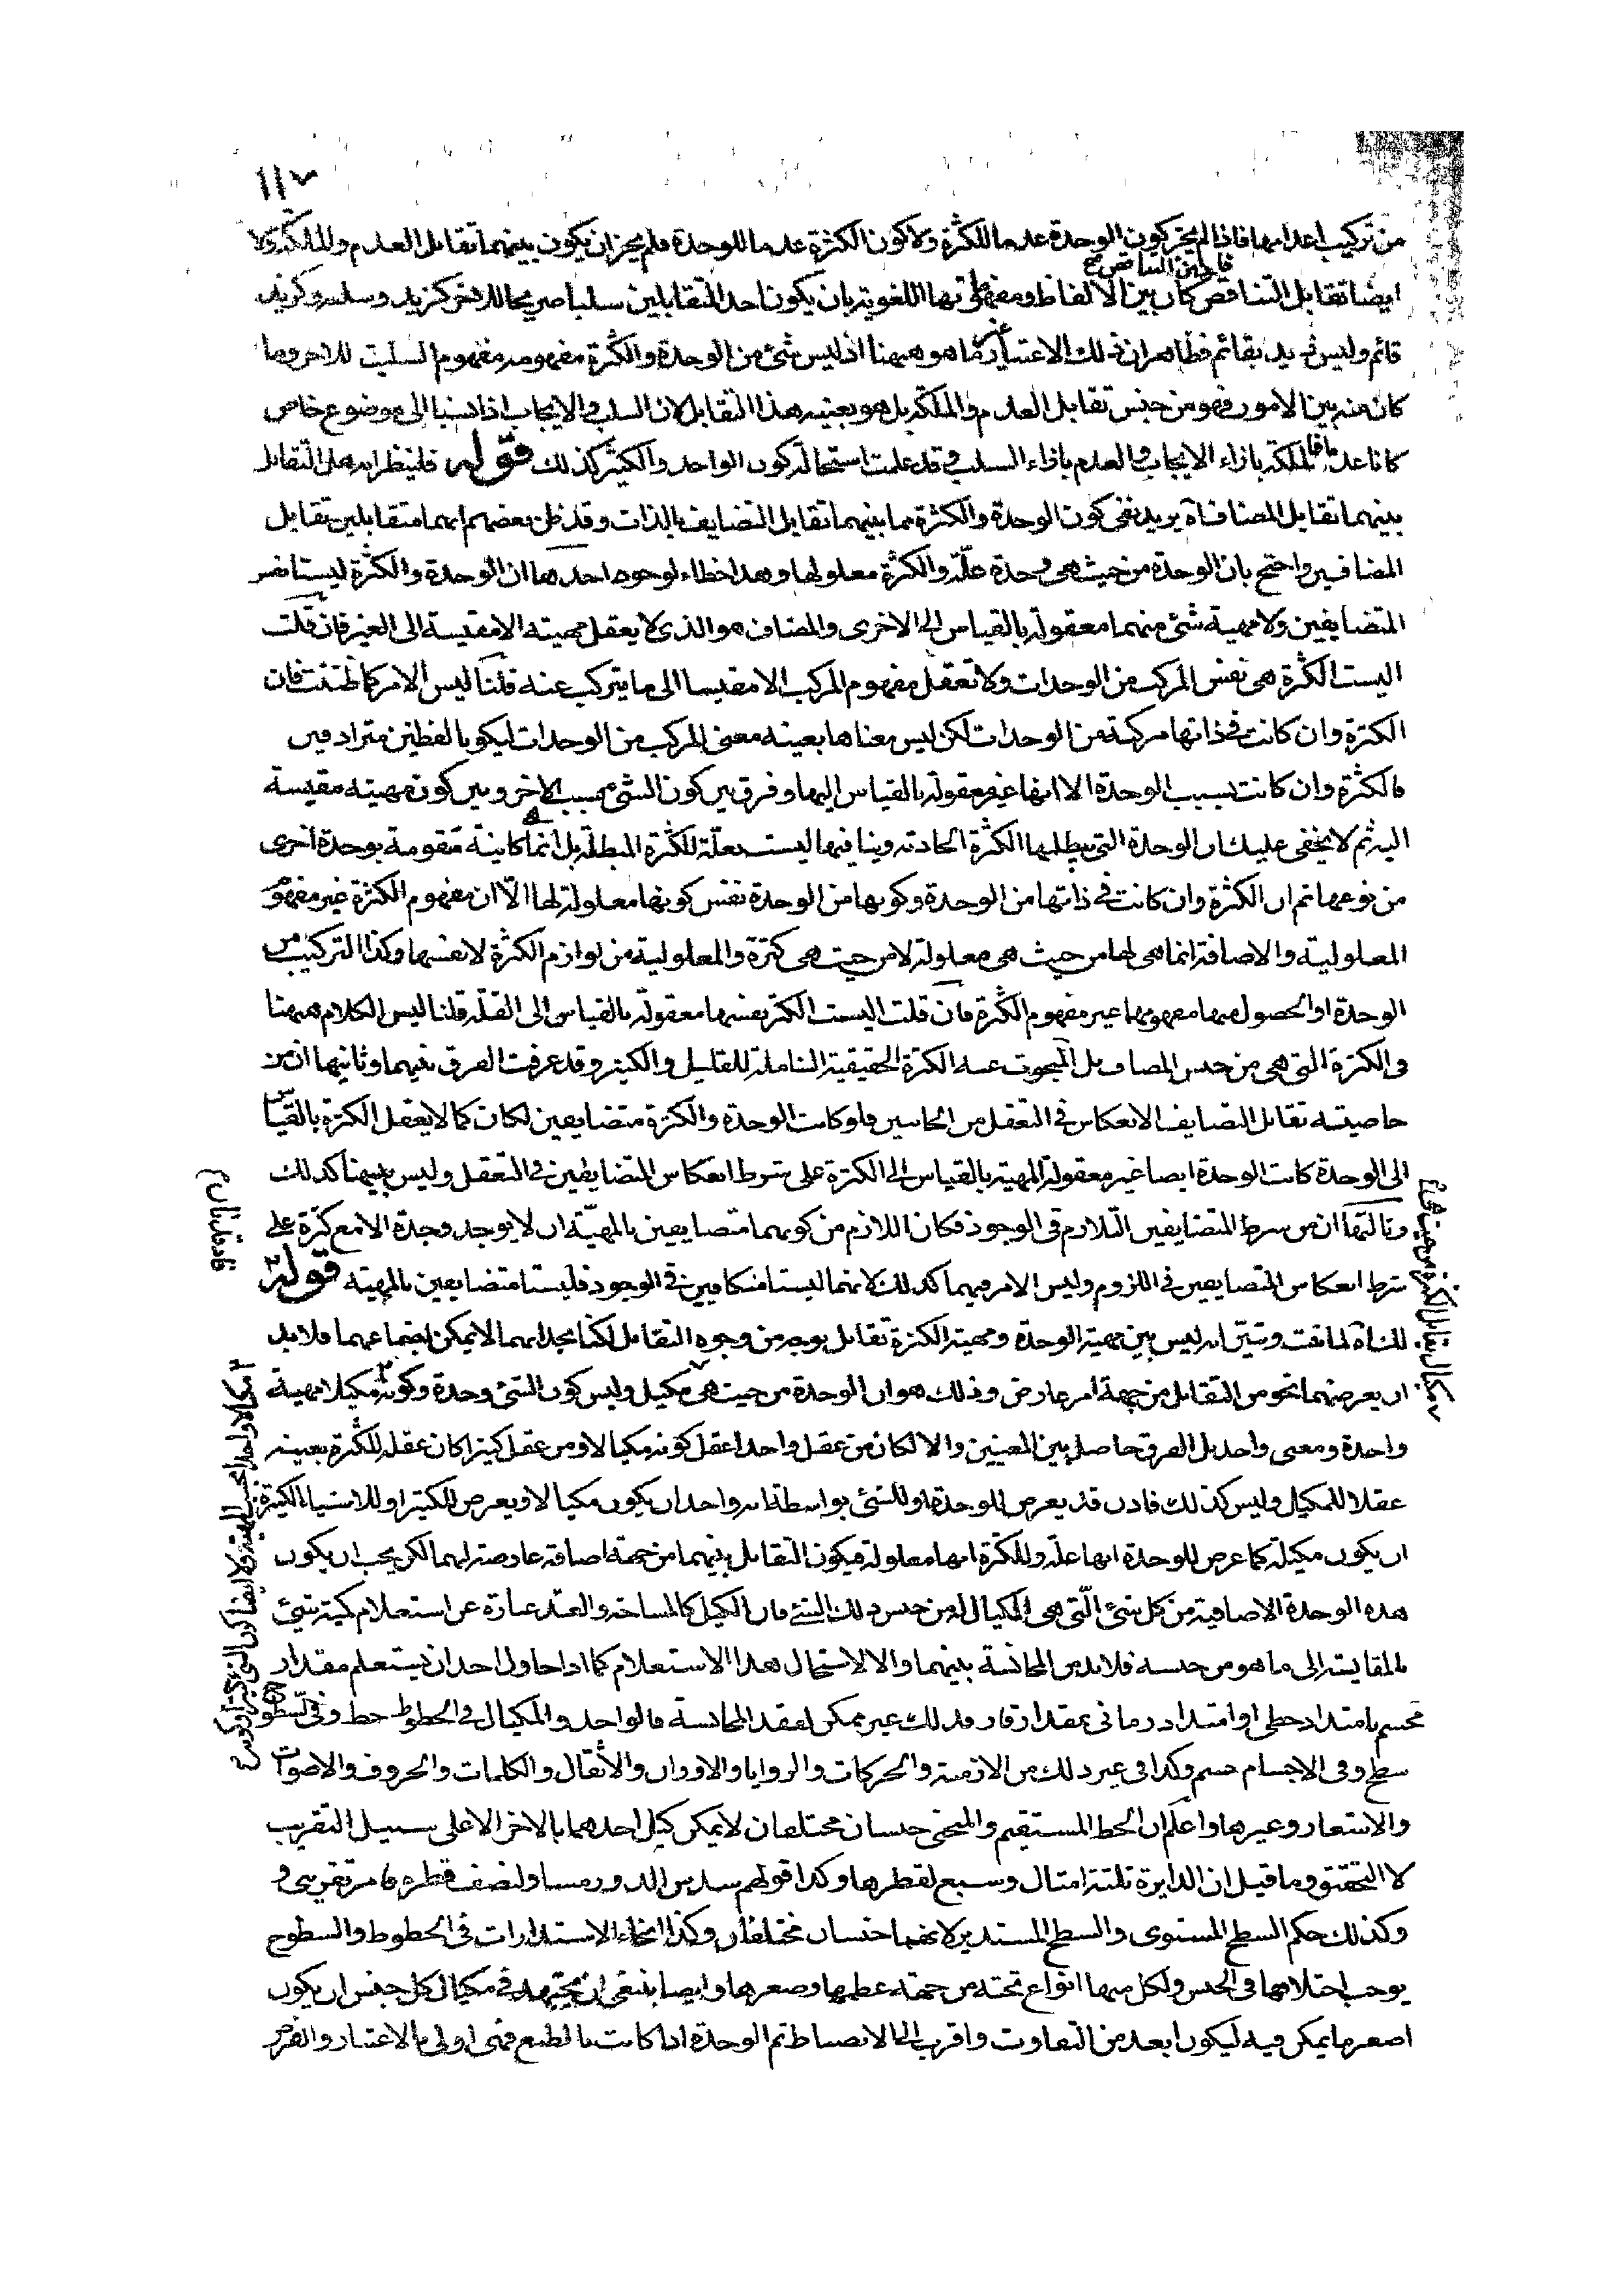 ١١٧
من تركيب اعدامها فاذا لم يجز كون الوحدة عدما للكثرة ولا كون الكثرة عدما للوحدة فلم يجز ان يكون بينهما تقابل العدم والملكة ولا
ايضا تقابل التناقض كان بين الالفاظ ومفهوماتها اللغوية بان يكون احد المتقابلين سلبا صريحا للاخر كزيد وسلبه وكزيد
قائم وليس زيد بقائم فظاهر ان ذلك الاعتبار غير ما هو هيهنا اذ ليس شئ من الوحدة والكثرة مفهومه مفهوم السلب للاخر وما
كان منه بين الامور فهو من جنس تقابل العدم والملكة بل هو بعينه هذا التقابل لان السلب والايجاب اذا نسبا الى موضوع خاص
كانا عدما فالملكة بازاء الايجاب والعدم بازاء السلب وقد علمت استحالة كون الواحد والكثير كذلك قوله فلينظر انه هل التقابل
بينهما تقابل المضاف اه يريد نفى كون الوحدة والكثرة مما بينهما تقابل التضايف بالذات وقد ظن بعضهم انهما متقابلين تقابل
المضافين واحتج بان الوحدة من حيث هى وحدة علة والكثرة معلولها وهذا خطاء لوجوه احدها ان الوحدة والكثرة ليستا من
المتضايفين ولا مهية شئ منهما معقولة بالقياس الى الاخرى والمضاف هو الذى لا يعقل مهيته الا مقيسة الى الغير فان قلت
اليست الكثرة هى نفس المركب من الوحدات ولا تعقل مفهوم المركب الا مقيسا الى ما يتركب عنه قلنا ليس الامر كما ظننت فان
الكثرة وان كانت فى ذاتها مركبة من الوحدات لكن ليس معناها بعينه معنى المركب من الوحدات ليكونا لفظين مترادفين
فالكثرة وان كانت بسبب الوحدة الا انها غير معقولة بالقياس اليها وفرق بين كون الشئ بسبب الاخر وبين كون مهيته مقيسة
اليه ثم لا يخفى عليك ان الوحدة التى يبطلها الكثرة الحادثة وينافيها ليست بعلة للكثرة المبطلة بل انما كانت متقومة بوحدة اخرى
من نوعها ثم ان الكثرة وان كانت فى ذاتها من الوحدة وكونها من الوحدة نفس كونها معلولة لها الا ان مفهوم الكثرة غير مفهوم
المعلولية والاضافة انما هى لها من حيث هى معلولة لا من حيث هى كثرة والمعلولية من لوازم الكثرة لا نفسها وكذا التركيب من
الوحدة او الحصول منها مفهومها غير مفهوم الكثرة فان قلت اليست الكثرة نفسها معقولة بالقياس الى القلة قلنا ليس الكلام هيهنا
فى الكثرة التى هى من جنس المضاف بل المبحوث عنه الكثرة الحقيقية الشاملة للقليل والكثير وقد عرفت الفرق بينهما وثانيها ان من
خاصيته تقابل التضايف الانعكاس فى التعقل من الجانبين فلو كانت الوحدة والكثرة متضايفين لكان كما لا يعقل الكثرة بالقياس
الى الوحدة كانت الوحدة ايضا غير معقولة المهية بالقياس الى الكثرة على شرط انعكاس المتضايفين فى التعقل وليس بينهما كذلك
وثالثها ان من شرط المتضايفين التلازم فى الوجود فكان اللازم من كونهما متضايفين بالمهية ان لا يوجد وحدة الا مع كثرة على
شرط انعكاس المتضايفين فى اللزوم وليس الامر فيهما كذلك لانهما ليستا متكافئين فى الوجود فليستا متضايفين بالمهية قوله
لك اه لما بقت وتبين انه ليس بين مهية الوحدة ومهية الكثرة تقابل بوجه من وجوه التقابل لكنا نجد انهما لا يمكن اجتماعهما فلابد
ان يعرضهما نحو من التقابل من جهة امر عارض وذلك هو ان الوحدة من حيث هى مكيل وليس كون الشئ وحدة وكونه مكيلا مهية
واحدة ومعنى واحد بل الفرق حاصل بين المعنيين والا لكان من عقل واحدا عقل كونه مكيالا ومن عقل كثيرا كان عقله للكثرة بعينه
عقلا للمكيل وليس كذلك فاذن قد يعرض للوحدة او للشئ بواسطة انه واحد ان يكون مكيالا ويعرض للكثير او للاشياء الكثيرة
ان يكون مكيلة كما عرض للوحدة انها علة وللكثرة انها معلولة فيكون التقابل بينهما من جهة اضافة عارضة لهما لكن يجب ان يكون
هذه الوحدة الاضافية من كل شئ التى هى المكيال له من جنس ذلك الشئ فان الكيل كالمساحة والعد عبارة عن استعلام كمية شئ
بالمقايسة الى ما هو من جنسه فلابد من المجانسة بينهما والا لاستحال هذا الاستعلام كما اذا حاول احد ان يستعلم مقدار
مجسم بامتداد خطى او امتداد زمانى بمقدار قار فذلك غير ممكن لفقد المجانسة فالواحد والمكيال فى الخطوط خط وفى السطوح
سطح وفى الاجسام جسم وكذا فى غير ذلك من الازمنة والحركات والزوايا والاوزان والاثقال والكلمات والحروف والاصوات
والاشعار وغيرها واعلم ان الخط المستقيم والمنحنى جنسان مختلفان لا يمكن كيل احدهما بالاخر الا على سبيل التقريب
لا التحقق وما قيل ان الدايرة ثلثة امثال وسبع لقطرها وكذا قولهم سدس الدور مساو لنصف قطره فامر تقريبى و
وكذلك حكم السطح المستوى والسطح المستدير لانهما جنسان مختلفان وكذا انحاء الاستدارات فى الخطوط والسطوح
يوجب اختلافها فى الجنس ولكل منها انواع تحته من جهة عظمها وصغرها وايضا ينبغى ان يجتهد فى مكيال كل جنس ان يكون
اصغر ما يمكن فيه ليكون ابعد من التفاوت واقرب الى الانضباط ثم الوحدة اذا كانت بالطبع فهى اولى بالاعتبار والفرض